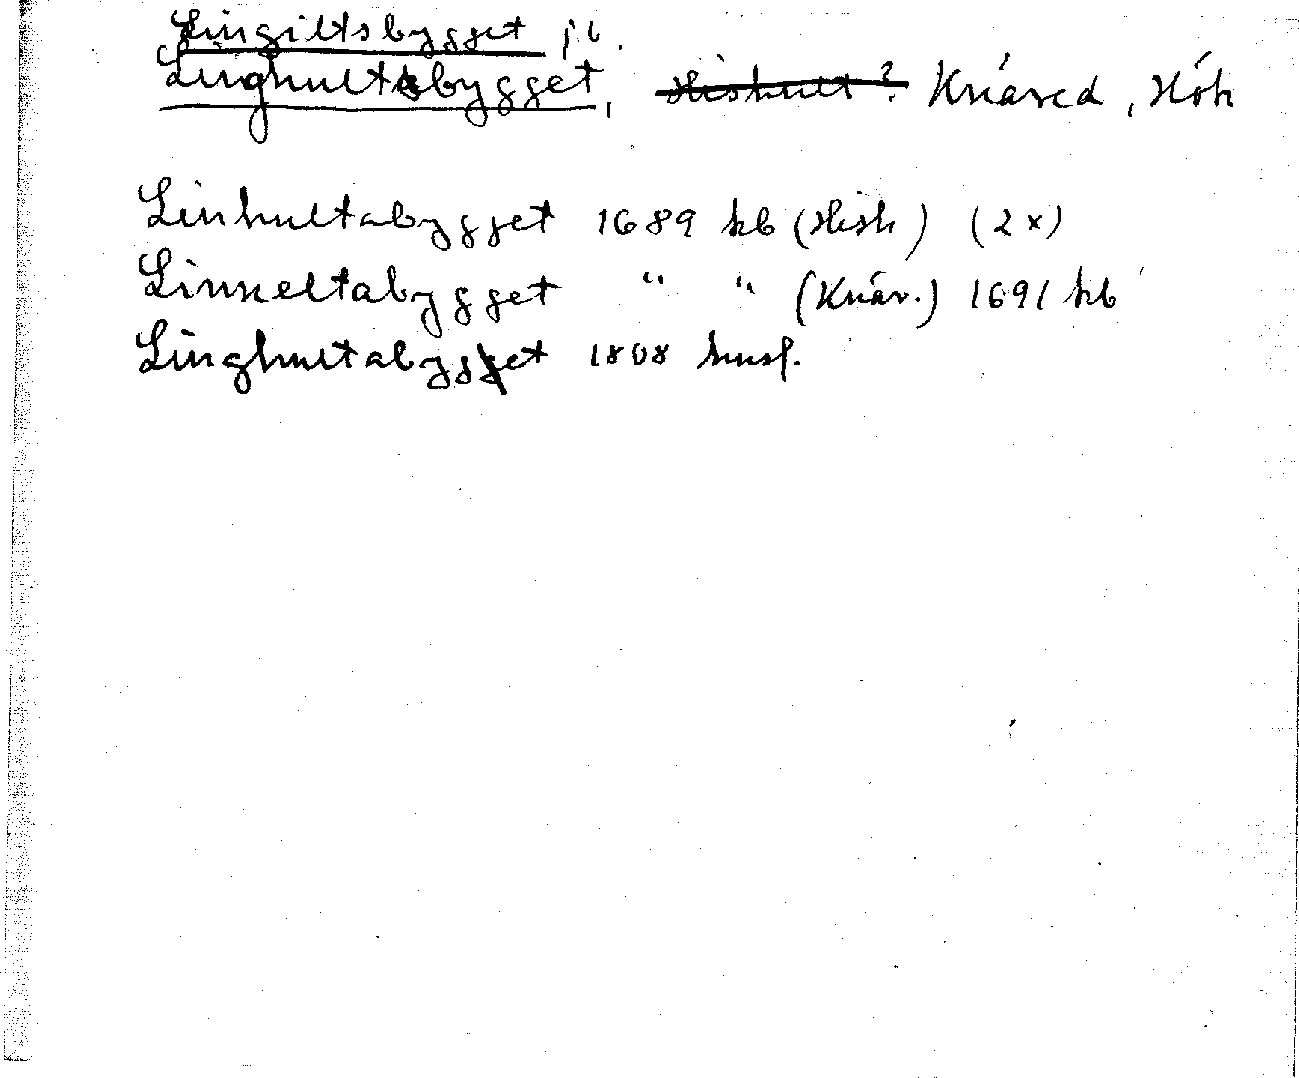 Lingiltsbygget jb.
Linghultsbygget, Hishult? Knäred, Hök
Linhultabygget 1689 kb (Hish) (2x)
Linneltabygget " " (Knär.) 1691 kb
Linghultabygget 1808 husf.